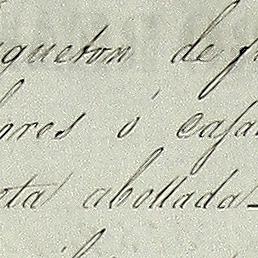 gueton de
ores ó casa
ota abollada